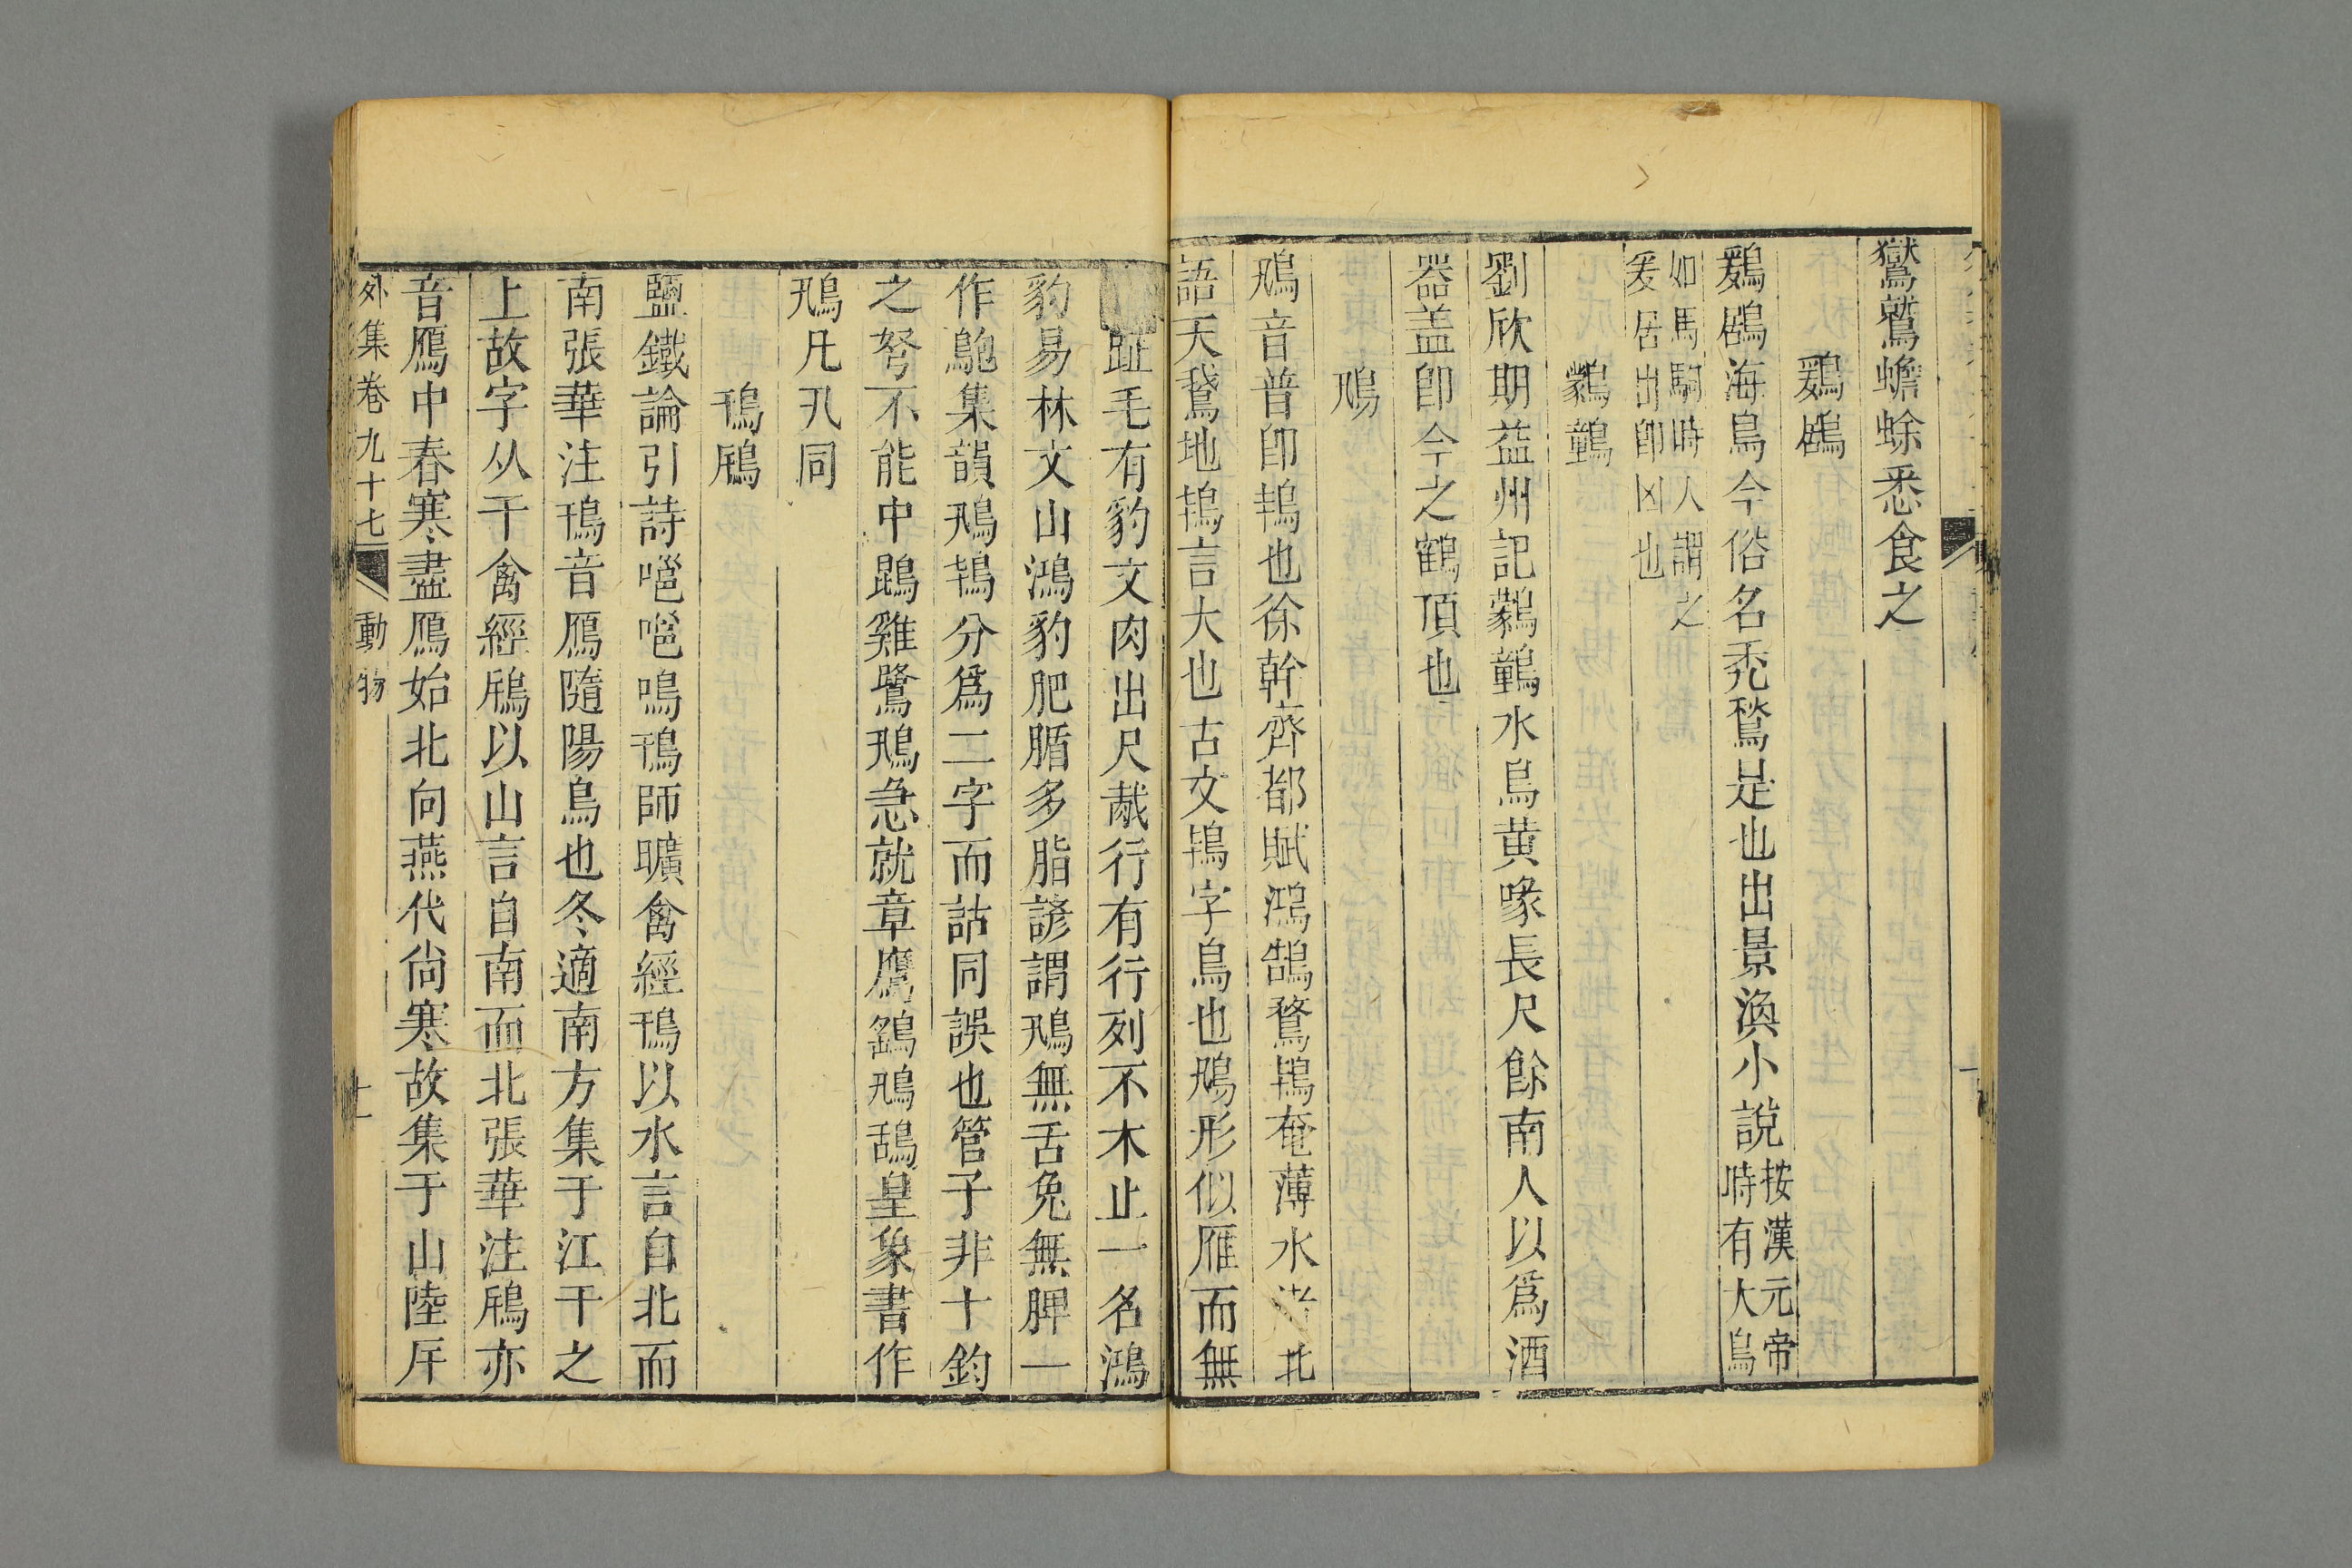 鸑鷟蟾蜍悉食之
鶢鶋
鶢鶋海鳥今俗名禿鶖是也出景渙小說按漢元帝
時有大鳥
如馬駒時人謂之
爰居出即凶也
鸏鷋
劉欣期益州記鸏鷋水鳥黄喙長尺餘南人以爲酒
器盖即今之鶴頂也
鳨
鳨音普即鴇也徐幹齊都賦鴻鵠鶩鴇奄薄水渚北
語天鵞地鴇言大也古文鴇字鳥也鳨形似雁而無
趾毛有豹文肉出尺胾行有行列不木止一名鴻
豹易林文山鴻豹肥腯多脂諺謂鳨無舌兔無脾一
作鴕集韻鳨鴇分爲二字而詁同誤也管子非十鈞
之弩不能中鶤雞鷺鳨急就章鷹鷂鳨鴰皇象書作
鳨凡孔同
鳱鴈
鹽鐵論引詩嗈嗈鳴鳱師曠禽經鳱以水言自北而
南張華注鳱音鴈隨陽鳥也冬適南方集于江干之
上故字从干禽經鴈以山言自南而北張華注鴈亦
音鴈中春寒盡鴈始北向燕代尚寒故集于山陸厈
外集卷九十七 動物 十一